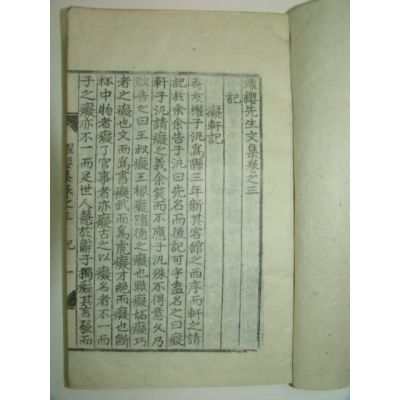 濯纓先生文集卷之三
記
癡軒記
吾友權子汎爲縣三年新其客館之西序而軒之請
記於余余告子汎曰先名而後記可乎盍名之曰癡
軒子汎請癡之義余笑而不應子汎殊不得意久乃
告之曰王叔癡王根癡德之癡也癡妬癡巧
者之癡也文而爲書癡武而爲虎癡才絶而癡也斷
杯中物者癡了官事者亦癡古之以癡名者不一而
子之癡亦不一而足世人慧於辭子獨癡其言發而
濯纓集卷之三 記 一